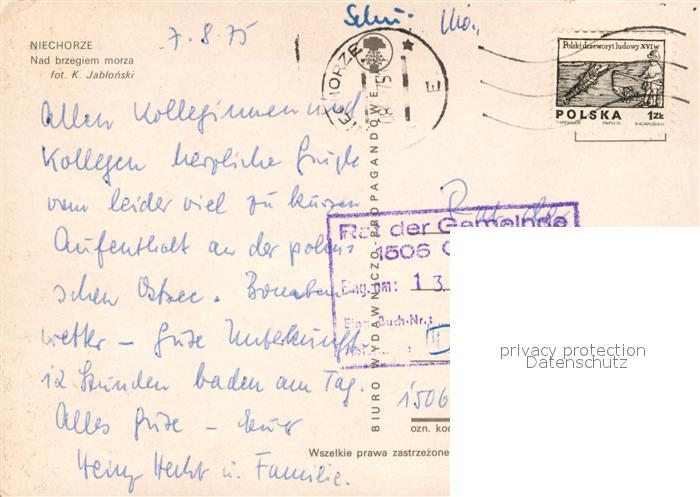 7.8.75
NIECHORZE
Nad brzegiem morza
fot. K. Jabloński
NIECHORZE
75
Polski drzeworyt ludowy XVI w
POLSKA 1ZŁ
Allen Kolleginnen und
Kollegen herzliche Grüße
vom leider viel zu kurzen
Aufenthalt an der polni-
schen Ostsee. Bomben
wetter – Gute Unterkunft
12 Stunden baden am Tag.
Alles Gute – Euer
Heinz Hecht u. Familie.
BIURO WYDAWNICZO-PROPAGANDOWE
Rat der
Rat der Gemeinde
1506
Eing. am: 13
Eing. Buch-Nr.:
III
1506
ozn. kod
Wszelkie prawa zastrzeżone
privacy protection
Datenschutz